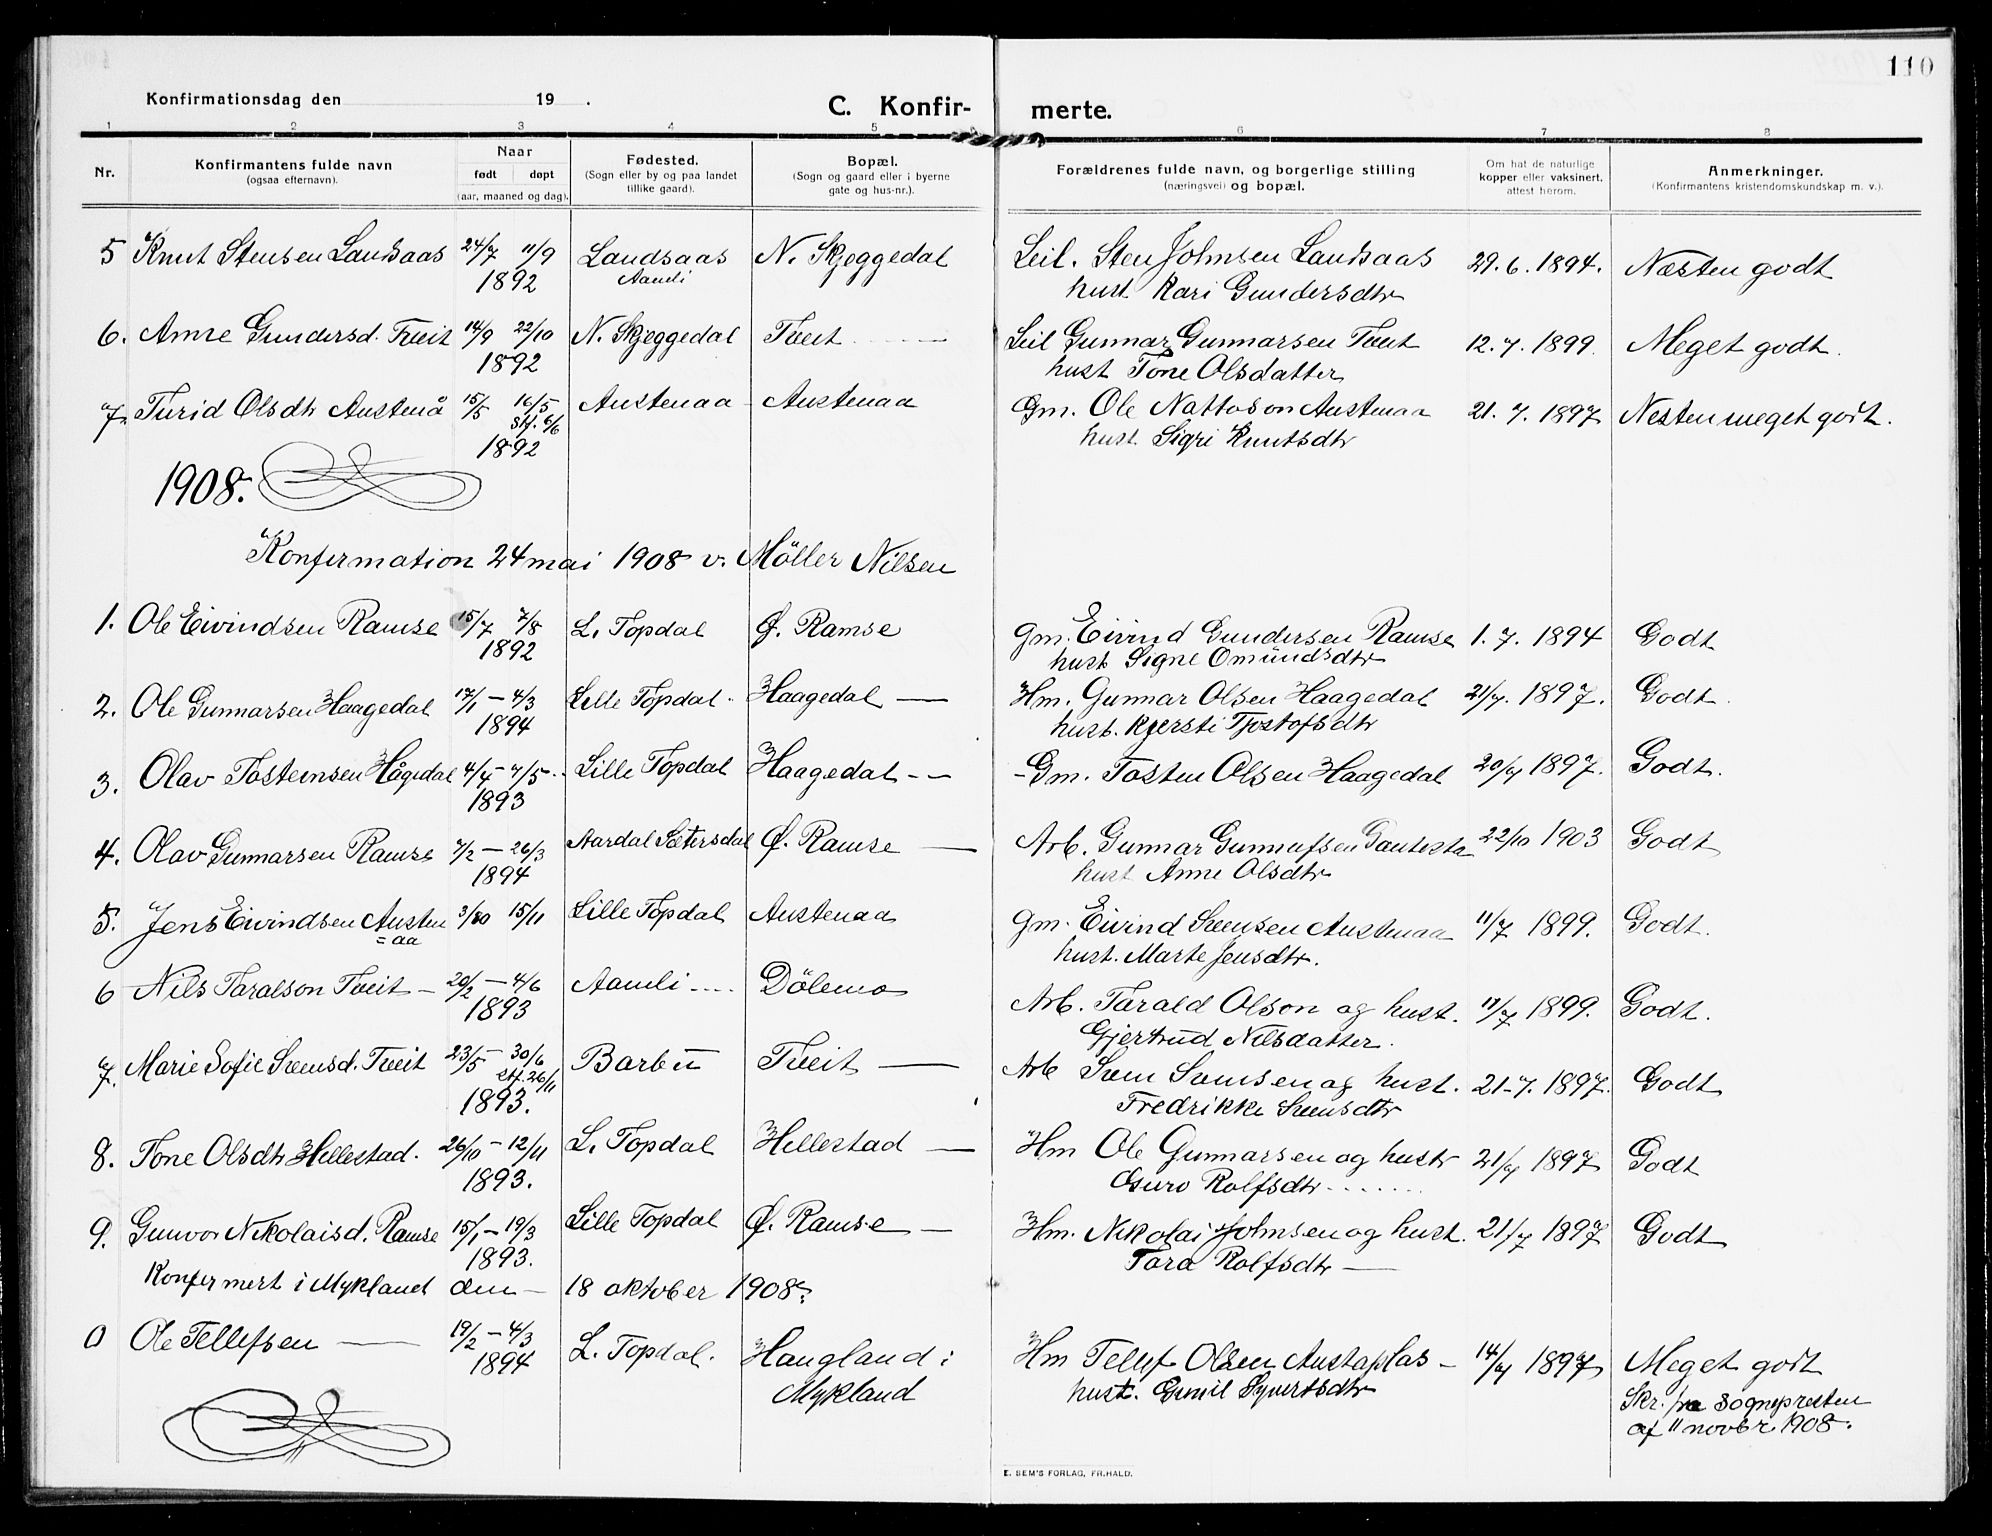 110
Konfirmationsdag den 19 .
C. Konfir- merte.
1 2 3 4 5 6 7 8
Nr.
Konfirmantens fulde navn
(ogsaa efternavn).
Naar
født døpt
(aar, maaned og dag).
Fødested.
(Sogn eller by og paa landet
tillike gaard).
Bopæl.
(Sogn og gaard eller i byerne
gate og hus-nr.).
Forældrenes fulde navn, og borgerlige stilling
(næringsvei) og bopæl.
Om hat de naturlige
kopper eller vaksinert,
attest herom.
Anmerkninger.
(Konfirmantens kristendomskundskap m. v.).
5 Knut Stensen Landsaas 24/7 11/9 Landsaas N. Skjeggedal Leil. Sten Johnsen Landsaas 29.6.1894. Næsten godt
1892 Aamli hust. Kari Gundersdtr
6. Anne Gundersd. Tveit 14/9 22/10 N. Skjeggedal Tveit Leil Gunnar Gunnarsen Tveit 12.7.1899. Meget godt.
1892 hust Tone Olsdatter
7. Turid Olsdtr Austenå 15/5 16/5 Austenaa Austenaa Gm. Ole Nattoson Austenaa 21.7.1897 Nesten meget godt.
Stf. 6/6
1892 hust. Sigri Knutsdtr
1908.
Konfirmation 24 mai 1908 v. Möller Nilsen
1. Ole Eivindsen Ramse 15/7 7/8 L. Topdal Ø. Ramse Gm. Eivind Gundersen Ramse 1.7.1894 Godt
1892 hust Signe Omundsdtr
2. Ole Gunnarsen Haagedal 17/1 – 4/3 Lille Topdal. Haagedal — Hm. Gunnar Olsen Haagedal 21/7. 1897. Godt.
1894 hust. Kjersti Tjostofsdtr
3. Olav Tosteinsen Hågedal 4/4 – 7/5 Lille Topdal Haagedal -- Gm. Tosten Olsen Haagedal 20/7 1897. Godt.
1893
4. Olav Gunnarsen Ramse 7/2 – 26/3 Aardal Sætersdal Ø. Ramse — Arb. Gunnar Gunnufsen 22/10 1903 Godt
1894 hust Anne Olsdtr
5. Jens Eivindsen Austen 15/11 Lille Topdal Austenaa Gm. Eivind Svensen Austenaa 11/7 1899. Godt.
=aa hust. Marte Jensdtr.
6 Nils Taralson Tveit – 20/2 – 4/6 Aamli Dölemo Arb. Tarald Olson og hust. 11/7 1899. Godt.
1893 Gjertrud Nilsdatter.
7. Marie Sofie Svensd. Tveit 23/5 – 30/6 Barbu Tveit — Arb Sven Svensen og hust. 21-7.1897. Godt
Stf. 26/11
1893. Fredrikke Svensdtr
8. Tone Olsdtr Hillestad. 26/10 – 12/11 L. Topdal Hillestad — Hm Ole Gunnarsen og hustr 21/7 1897 Godt
1893. Guro Rolfsdtr
9. Gunvor Nikolaisd. Ramse 15/1 – 19/3 Lille Topdal Ø. Ramse — Hm. Nikolai Johnsen og hust. 21/7 1897 Godt
1893. Tara Rolfsdtr —
Konfirmert i Mykland den – 18 oktober 1908.
0 Ole Tellefsen — 19/2 – 4/3 L. Topdal. Haugland i Hm Tellef Olsen Austaplas – 14/7 1897 Meget godt
1894 Mykland hust. Gunil Syvertsdtr
Skr. fra Sognepresten
af 11 novbr 1908.
E. SEM'S FORLAG, FR.HALD.